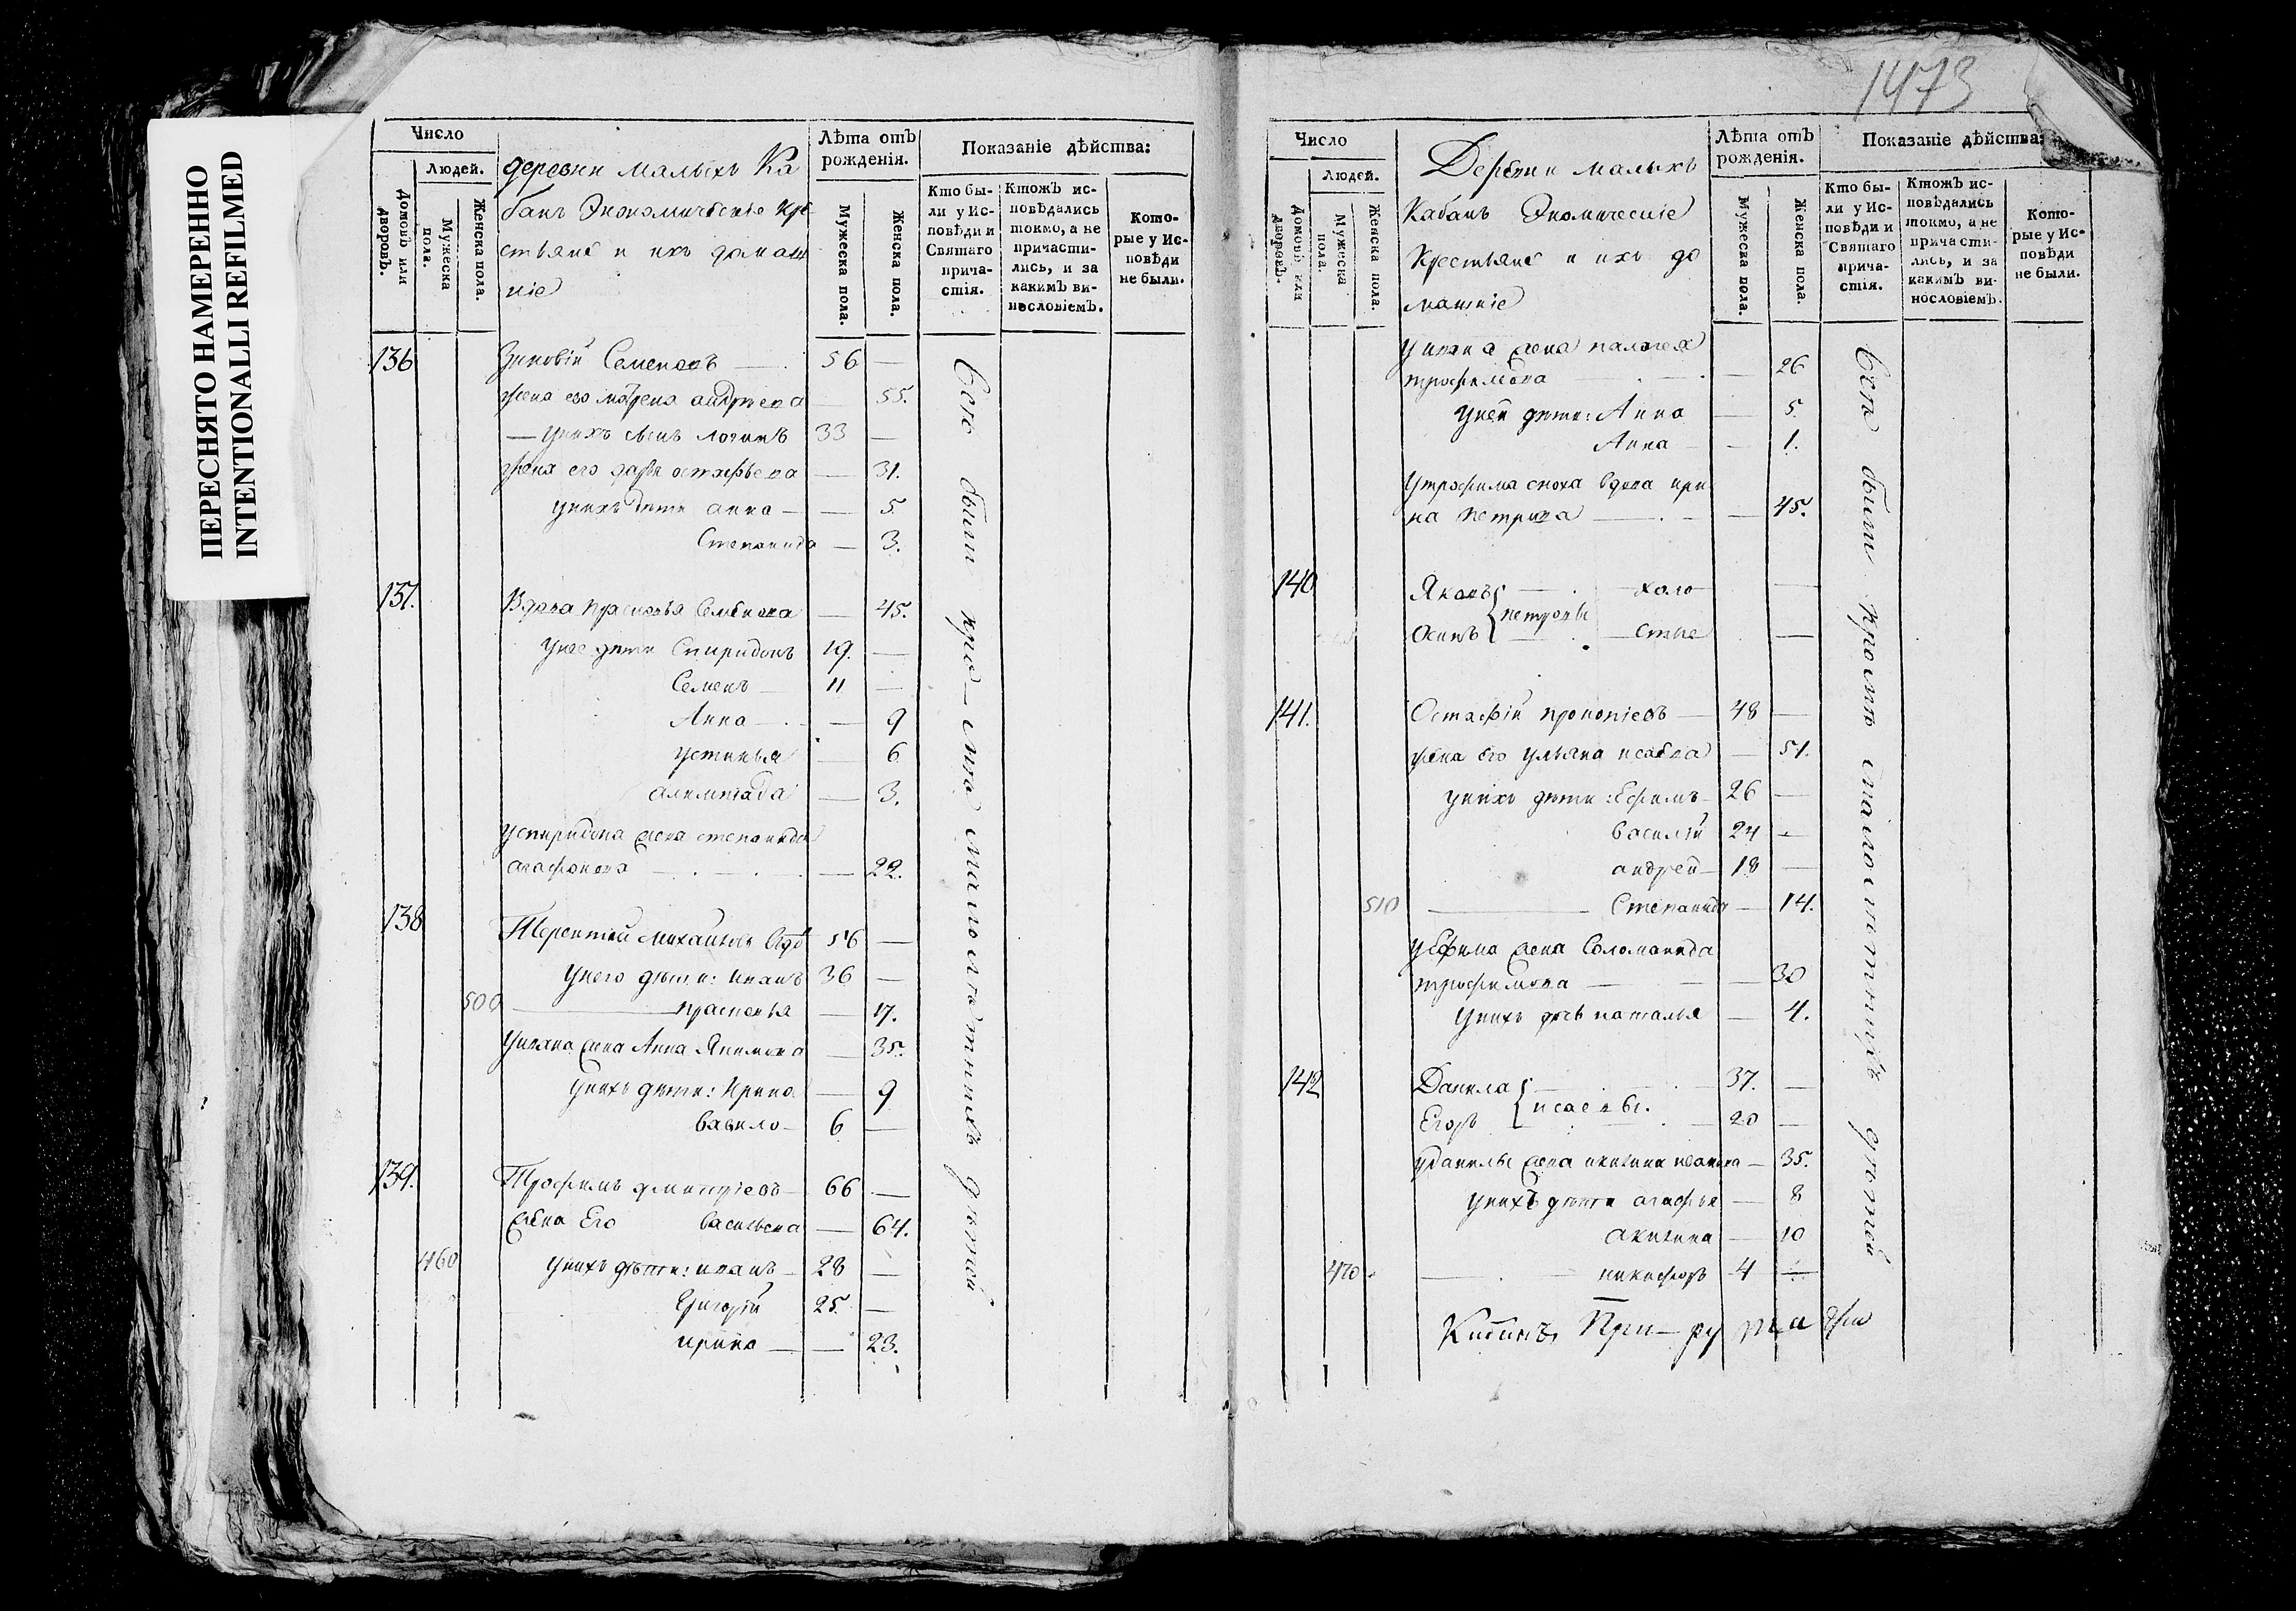 ПЕРЕСНЯТО НАМЕРЕННО
INTENTIONALLI REFILMED
Число
Людей.
Домовъ или дворовъ.
Мужеска пола.
Женска пола.
деревни малыхъ Ка
банъ Экономическіе кре
стьяне и ихъ домаш
ніе
Лѣта отъ рожденія.
Мужеска пола.
Женска пола.
Показаніе дѣйства:
Кто бы-
ли у Ис-
повѣди и
Святаго
прича-
стія.
Ктожъ ис-
повѣдались
токмо, а не
причасти-
лись, и за
какимъ ви-
нословіемъ.
Кото-
рые у Ис-
повѣди
не были.
136 Зиновій Семеновъ — 56 —
жена его матрена андреева — 55.
— унихъ сынъ логинъ 33 —
жена его дарья остафьева — 31.
унихъ дети анна — — 5
Степанида — 3.
137. Вдова Прасковья Семенова — 45.
унее дети Спиридонъ 19. —
Семенъ — 11 —
Анна — — 9
устинья — 6
алимпиада — 3.
успиридона жена степанида
агафонова — 22.
138 Терентей михайловъ вдов 56 —
унего дѣти: иванъ 36 —
500 — прасковья — 17.
уивана жена Анна Якимова — 35.
унихъ дѣти: Ирина — 9
вавило — 6 —
139. Трофимъ дмитріевъ — 66 —
жена Его васильева — 64.
460 унихъ дѣти: иванъ — 28 —
Григорій 25. —
ирина — — 23.
всѣ были кро-мѣ малолѣтнихъ дѣтей
1473
Число
Людей.
Домовъ или дворовъ.
Мужеска пола.
Женска пола.
Деревни малыхъ
Кабанъ Экомические
Крестьяне и ихъ до
машніе
Лѣта отъ рожденія.
Мужеска пола.
Женска пола.
Показаніе дѣйства:
Кто бы-
ли у Ис-
повѣди и
Святаго
прича-
стія.
Ктожъ ис-
повѣдались
токмо, а не
причасти-
лись, и за
какимъ ви-
нословіемъ.
Кото-
рые у Ис-
повѣди
не были.
уивана жена палагея
трофимова — 26
унеи дети: Анна — 5
Анна — — 1.
утрофима сноха вдова ири
на петрова — — 45.
140 Яковъ — холо —
петровы
Осипъ — стые —
141. Остафій прокопіевъ — 48 —
жена его ульяна исаева — 51.
унихъ дѣти: Ефимъ — 26 —
василій 24 —
андрей — 18 —
510 — Степанида — 14.
уЕфима жена Соломанида
трофимова — — 30
унихъ дочь наталья — 4.
142 Данила — 37. —
исаевы.
Егоръ — 20 —
уданилы жена акилина иванова — 35.
унихъ дѣти агафья — 8
акилина — 10
470 — никифоръ 4 —
всѣ были кромѣ малолѣтнихъ дѣтей